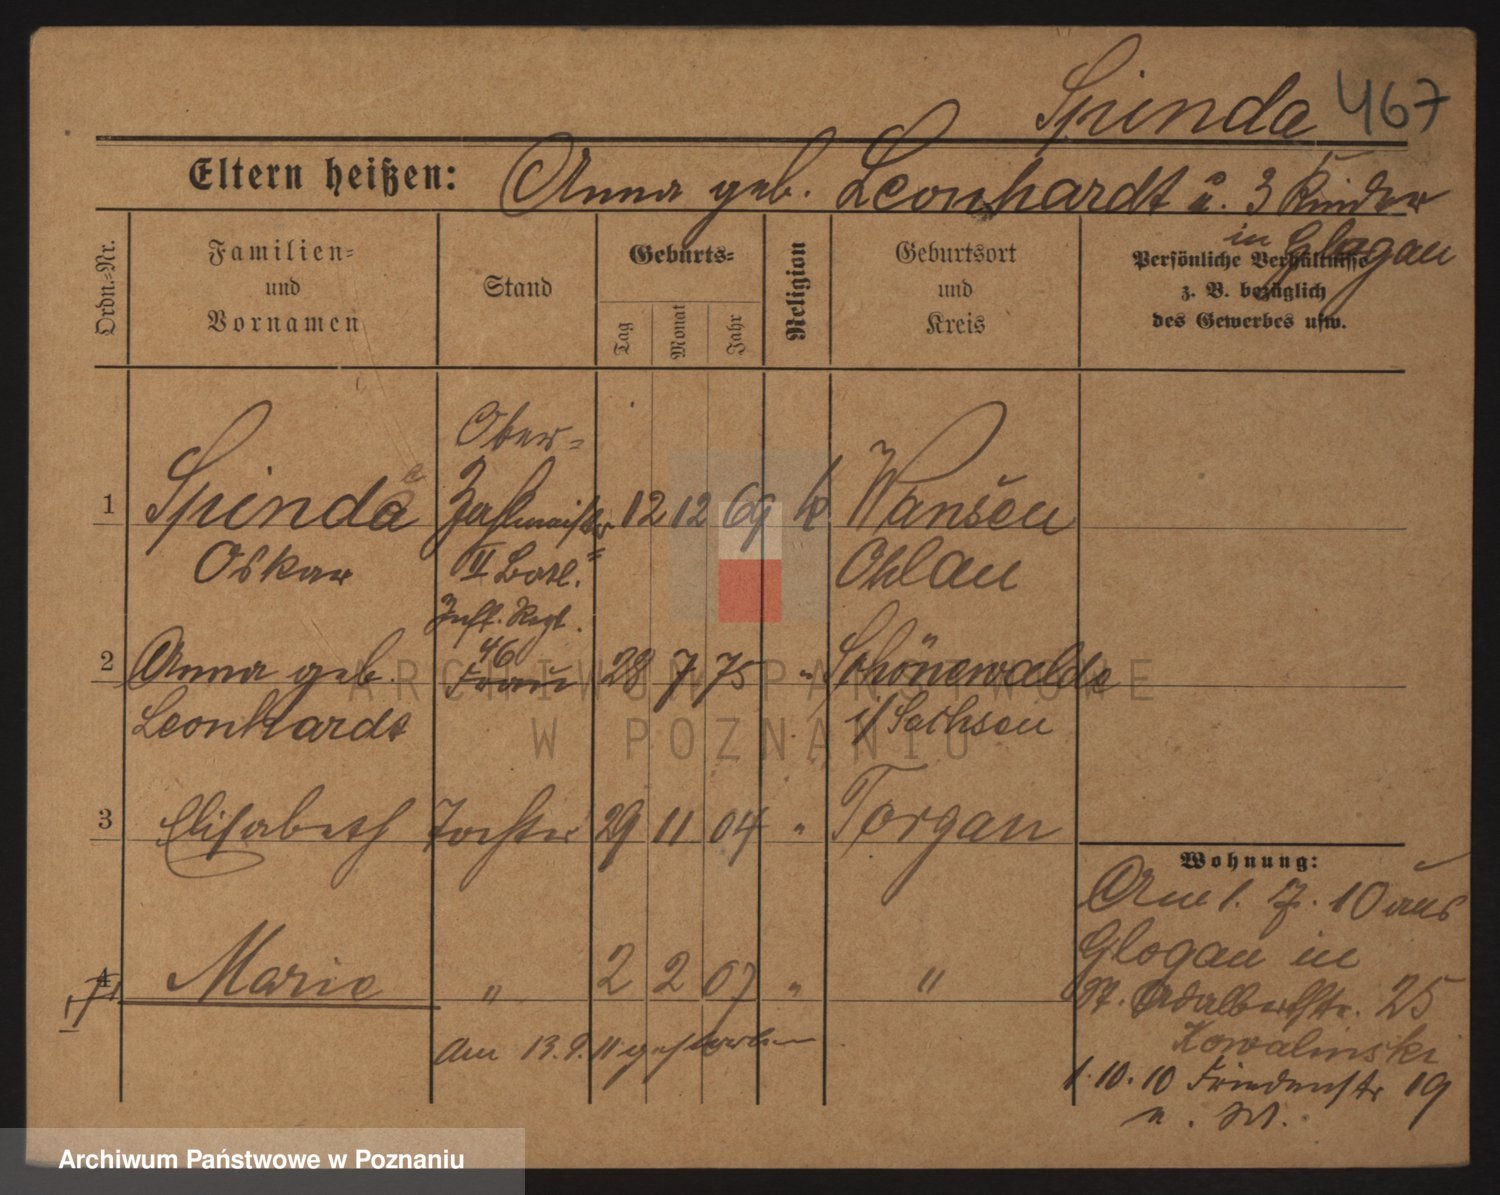 Spinda 467
Eltern heißen: Anna geb. Leonhardt u. 3 Kinder
in Glogau
Ordn.-Nr.
Familien-
und
Vornamen
Stand
Geburts-
Tag
Monat
Jahr
Religion
Geburtsort
und
Kreis
Persönliche Verhältnisse
z. B. bezüglich
des Gewerbes usw.
1 Spinda Ober- Zahlmeister 12 12 69 k Wansen
Oskar II Batl. Ohlau
Inft. Regt.
46
2 Anna geb. Frau 28 7 75 " Schönewalde
Leonhardt i/Sachsen
3 Elisabeth Tochter 29 11 04 " Torgau
Wohnung:
Am 1. 7. 10 aus
Glogau in
4 Marie " 2 2 07 " "
St. Adalbertstr. 25
Kowalinski
am 13.9.11 gestorben
1.10.10 Friedenstr 19
u. W.
ARCHIWUM PAŃSTWOWE
W POZNANIU
Archiwum Państwowe w Poznaniu